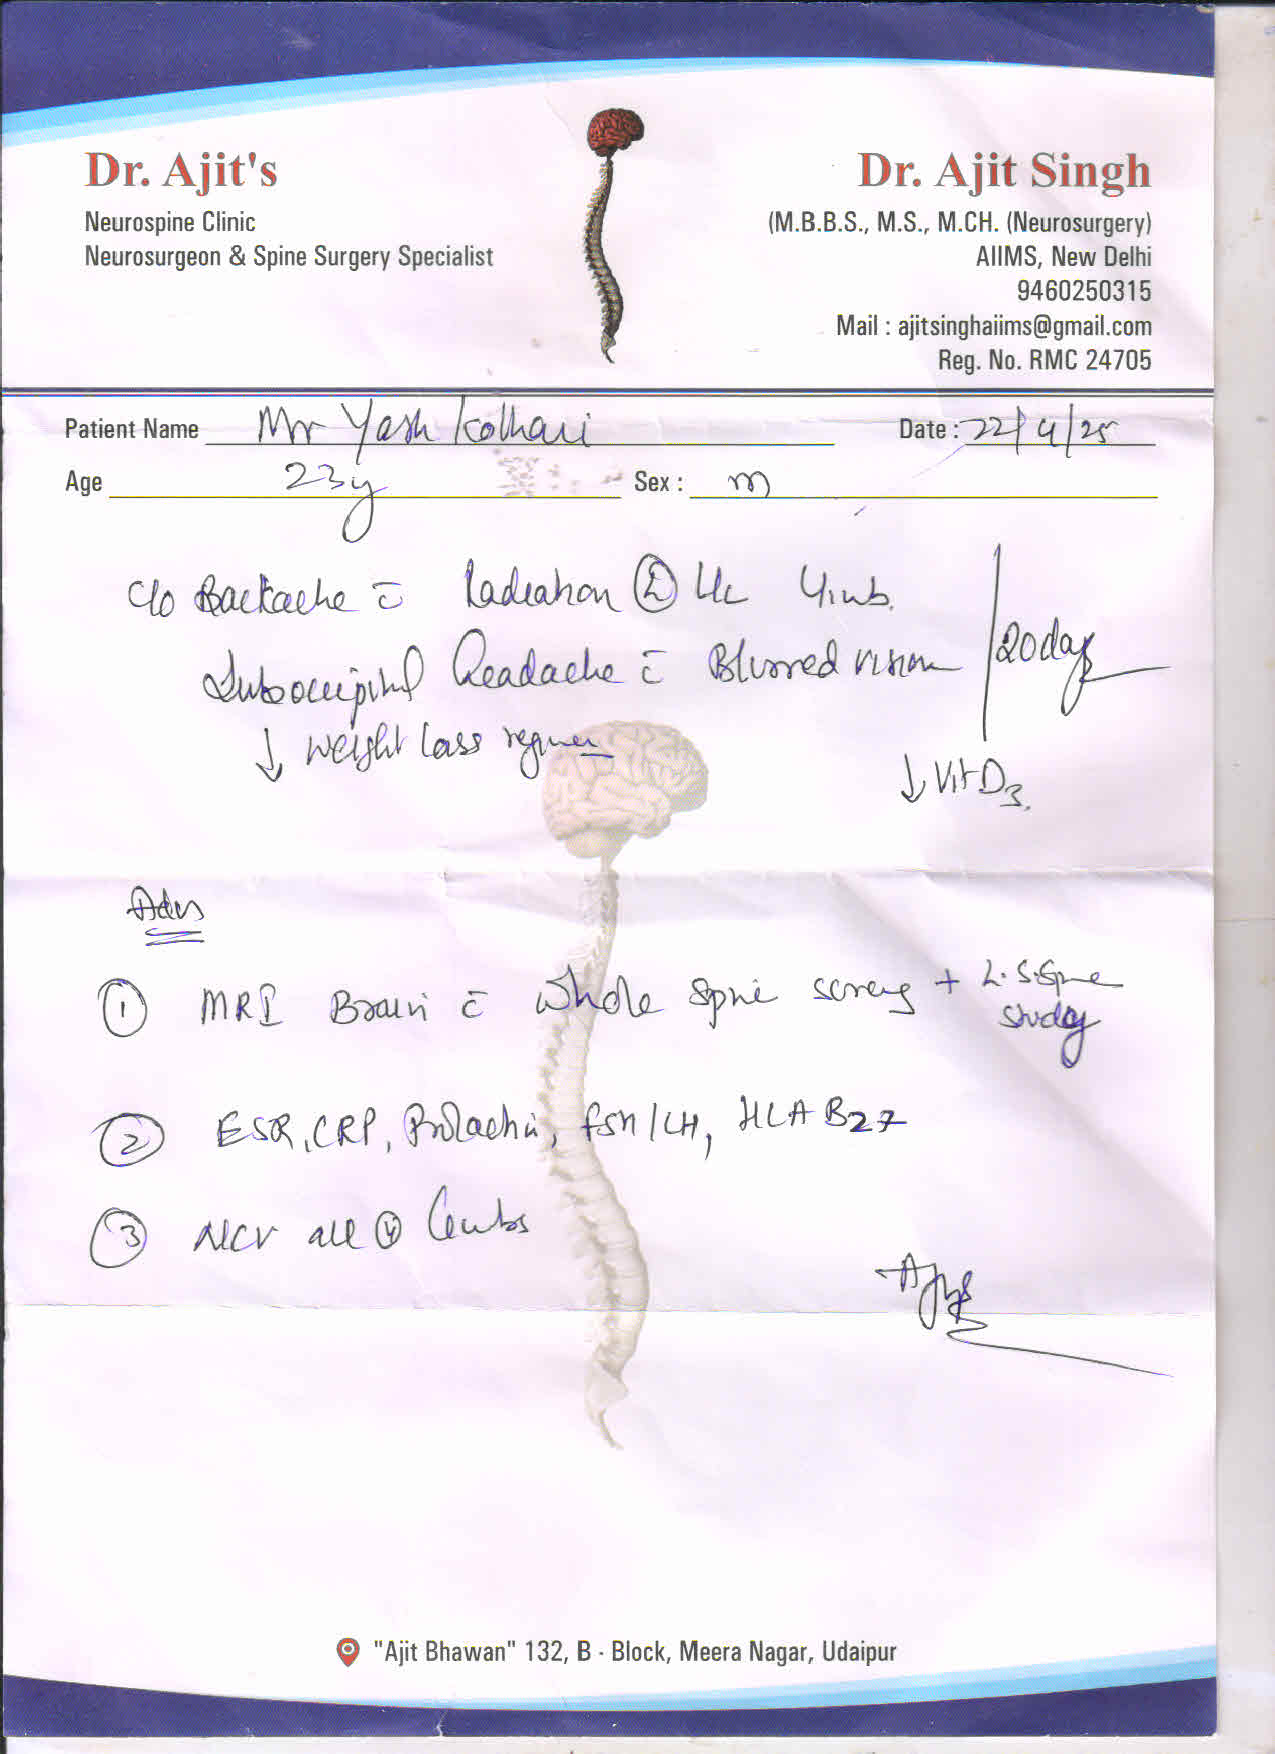 Dr. Ajit's
Neurospine Clinic
Neurosurgeon & Spine Surgery Specialist
Dr. Ajit Singh
(M.B.B.S., M.S., M.CH. (Neurosurgery)
AIIMS, New Delhi
9460250315
Mail : ajitsinghaiims@gmail.com
Reg. No. RMC 24705
Patient Name Mr Yash Kothari Date : 22/4/25
Age 23y Sex : m
c/o Backache c̄ Radiation Ⓛ
Suboccipital Headache c̄ Blurred vision 20 days
↓ weight loss regimen
↓ Vit D3.
Adv
① MRI Brain c̄ Whole Spine screng + L.S. Spine
study
② ESR, CRP, Prolactin, FSH/LH, HLA B27
③ NCV all ④ Limbs
"Ajit Bhawan" 132, B - Block, Meera Nagar, Udaipur